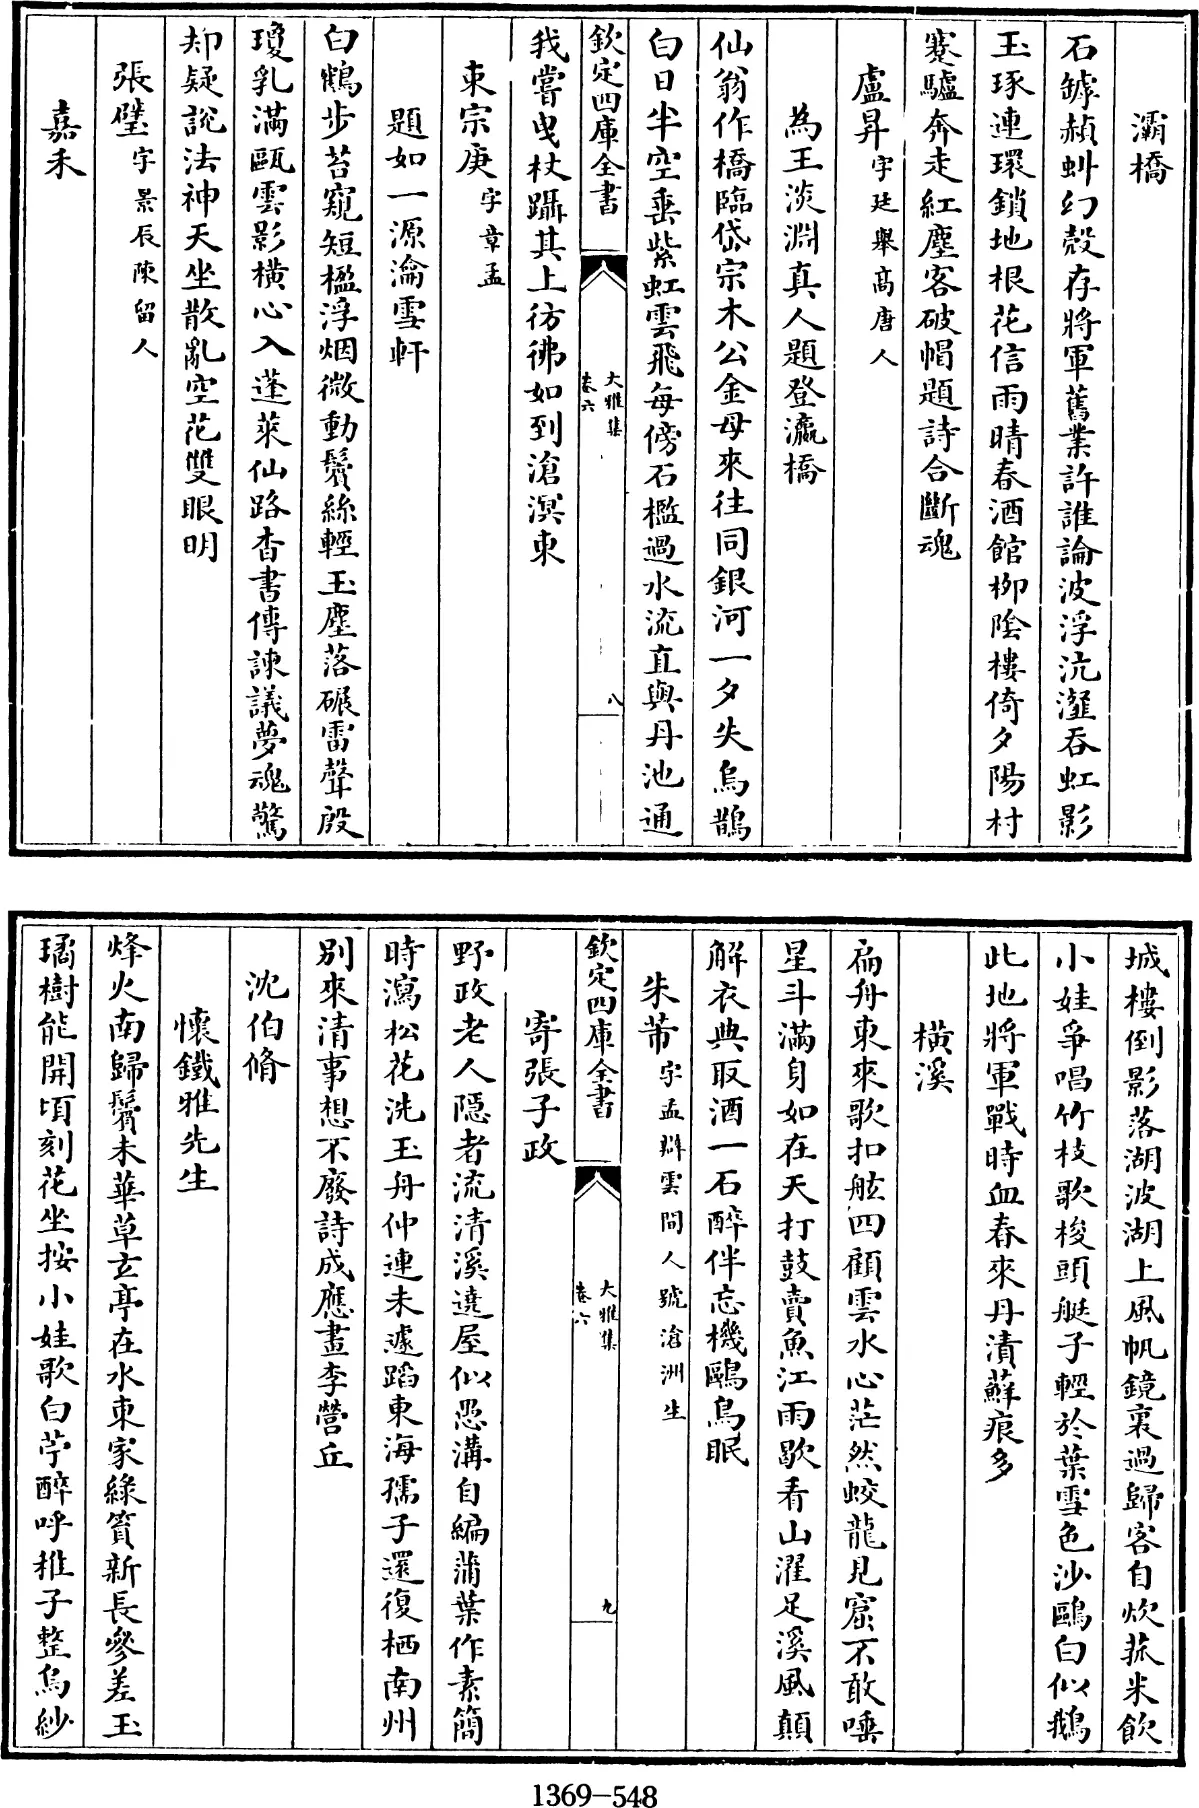 灞橋
石罅赬虯幻殼存將軍舊業許誰論波浮沆瀣吞虹影
玉琢連環鎖地根花信雨晴春酒館柳陰樓倚夕陽村
蹇驢奔走紅塵客破帽題詩合斷魂
盧昇字廷舉高唐人
為王淡淵真人題登瀛橋
仙翁作橋臨岱宗木公金母來往同銀河一夕失烏鵲
白日半空垂紫虹雲飛每傍石檻過水流直與丹池通
欽定四庫全書
大雅集
卷六
八
我嘗曳杖躡其上彷彿如到滄溟東
東宗庚字章孟
題如一源瀹雪軒
白鶴步苔窺短楹浮烟微動鬢絲輕玉塵落碾雷聲殷
瓊乳滿甌雲影橫心入蓬萊仙路杳書傳諫議夢魂驚
却疑說法神天坐散亂空花雙眼明
張璧字景辰陳留人
嘉禾
城樓倒影落湖波湖上風帆鏡裏過歸客自炊菰米飲
小娃爭唱竹枝歌梭頭艇子輕於葉雪色沙鷗白似鵝
此地將軍戰時血春來丹漬蘚痕多
橫溪
扁舟東來歌扣舷四顧雲水心茫然蛟龍見窟不敢唾
星斗滿身如在天打鼓賣魚江雨歇看山濯足溪風顛
解衣典取酒一石醉伴忘機鷗鳥眠
朱芾字孟辯雲間人號滄洲生
欽定四庫全書
大雅集
卷六
九
寄張子政
野政老人隱者流清溪遶屋似愚溝自編蒲葉作素簡
時瀉松花洗玉舟仲連未遽蹈東海孺子還復栖南州
別來清事想不廢詩成應畫李營丘
沈伯脩
懷鐵雅先生
烽火南歸鬢未華草玄亭在水東家綠篔新長參差玉
璚樹能開頃刻花坐按小娃歌白苧醉呼稚子整烏紗
1369-548